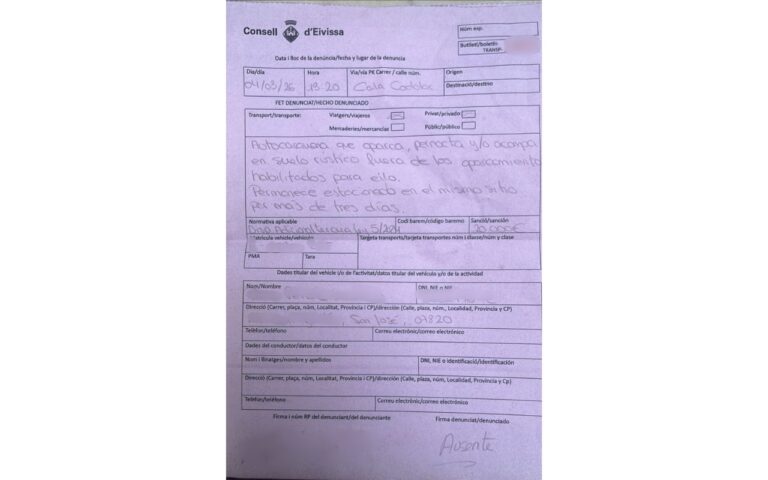 Consell d'Eivissa
Núm exp.
Butlletí/boletín
TRANSP-
Data i lloc de la denúncia/fecha y lugar de la denuncia
Dia/día Hora Via/vía PK Carrer / calle núm. Origen
04/03/26 13:20 Cala Codolar
Destinació/destino
FET DENUNCIAT/HECHO DENUNCIADO
Transport/transporte: Viatgers/viajeros Privat/privado
Mercaderies/mercancías Públic/público
Autocaravana que aparca, pernocta y/o acampa
en suelo rústico fuera de los aparcamiento
habilitados para ello.
Permanece estacionado en el mismo sitio
por más de tres días.
Normativa aplicable Codi barem/código baremo Sanció/sanción
5/2024 20.000€
Matrícula vehicle/vehículo Targeta transports/tarjeta transportes núm i classe/núm y clase
PMA Tara
Dades titular del vehicle i/o de l'activitat/datos titular del vehículo y/o de la actividad
Nom/Nombre DNI, NIE o NIF
Direcció (Carrer, plaça, núm, Localitat, Província i CP)/dirección (Calle, plaza, núm., Localidad, Provincia y CP)
, San José, 07820
Telèfon/teléfono Correu electrònic/correo electrónico
Dades del conductor/datos del conductor
Nom i llinatges/nombre y apellidos DNI, NIE o identificació/identificación
Direcció (Carrer, plaça, núm, Localitat, Província i CP)/dirección (Calle, plaza, núm, Localidad, Provincia y Cp)
Telèfon/teléfono Correu electrònic/correo electrónico
Firma i núm RP del denunciant/del denunciante Firma denunciat/denunciado
Ausente